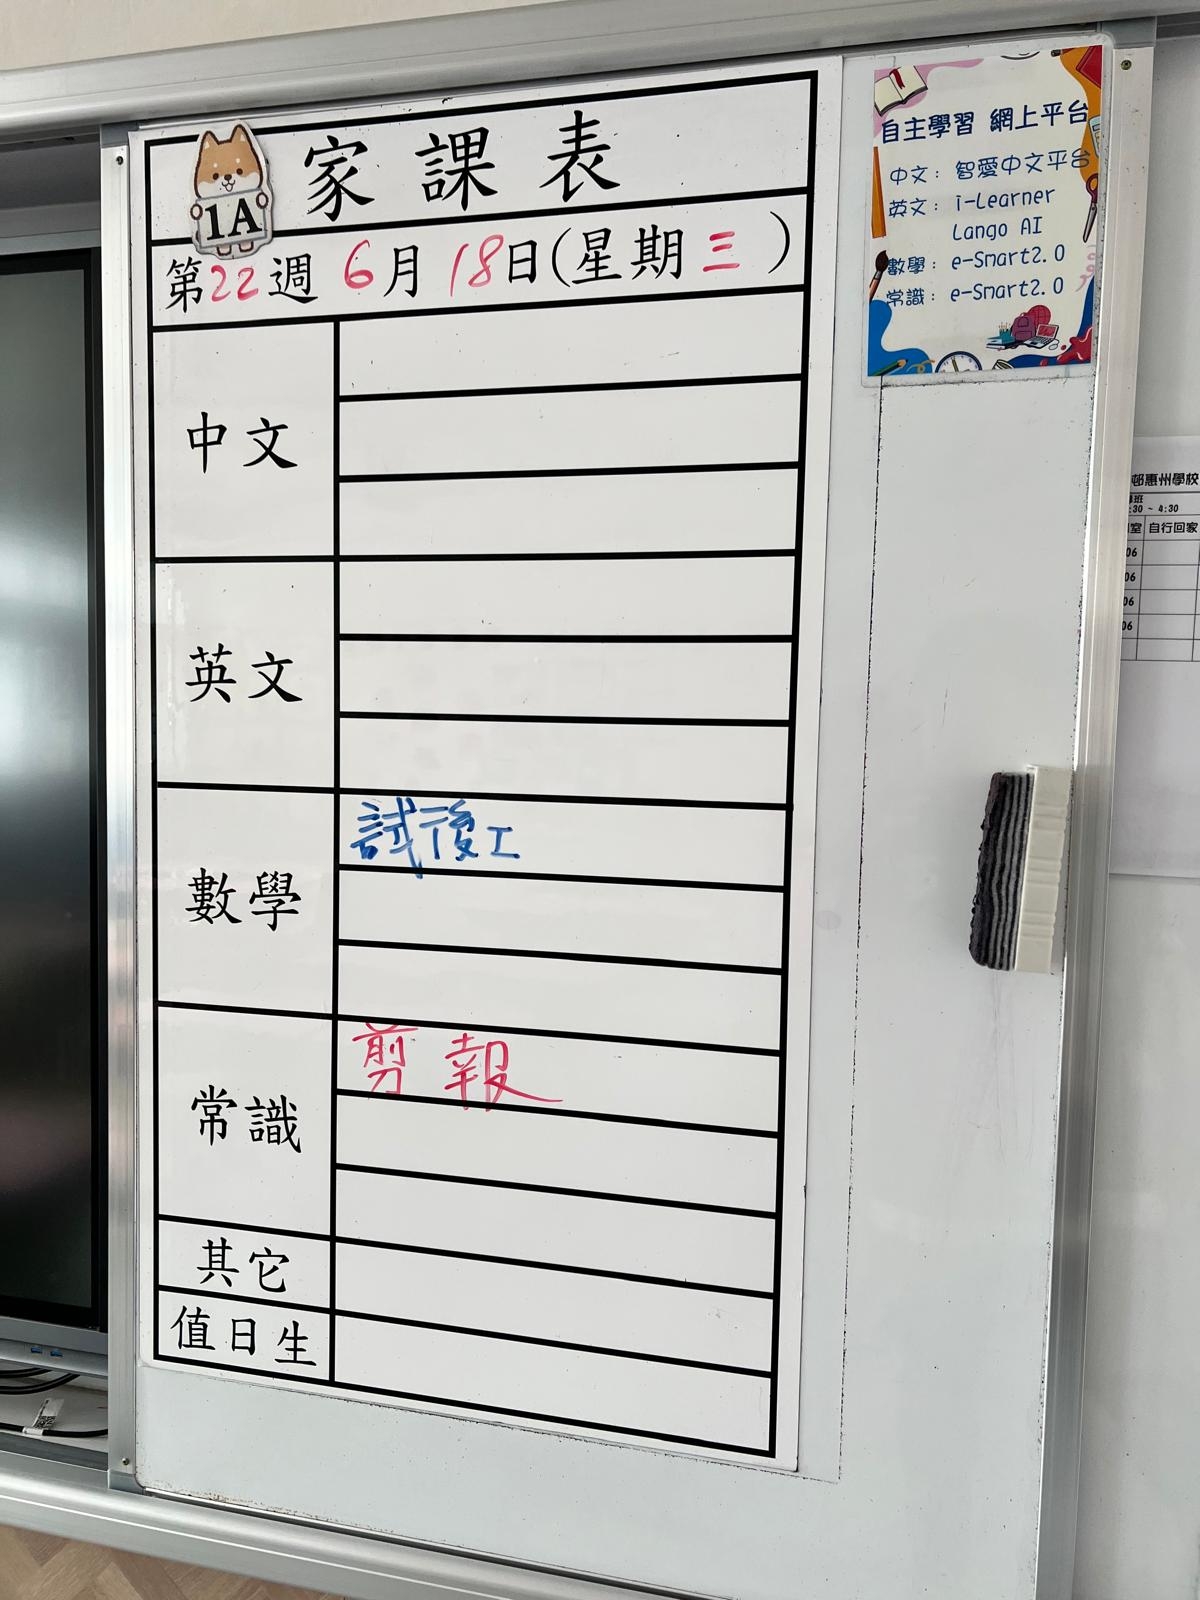 家課表
1A
第22週 6月 18日(星期三)
中文
英文
數學
試後工
常識
剪報
其它
值日生
自主學習 網上平台
中文：智愛中文平台
英文：i-Learner
Lango AI
數學：e-Smart2.0
常識：e-Smart2.0
邨惠州學校
班
:30 ~ 4:30
室 自行回家
06
06
06
06